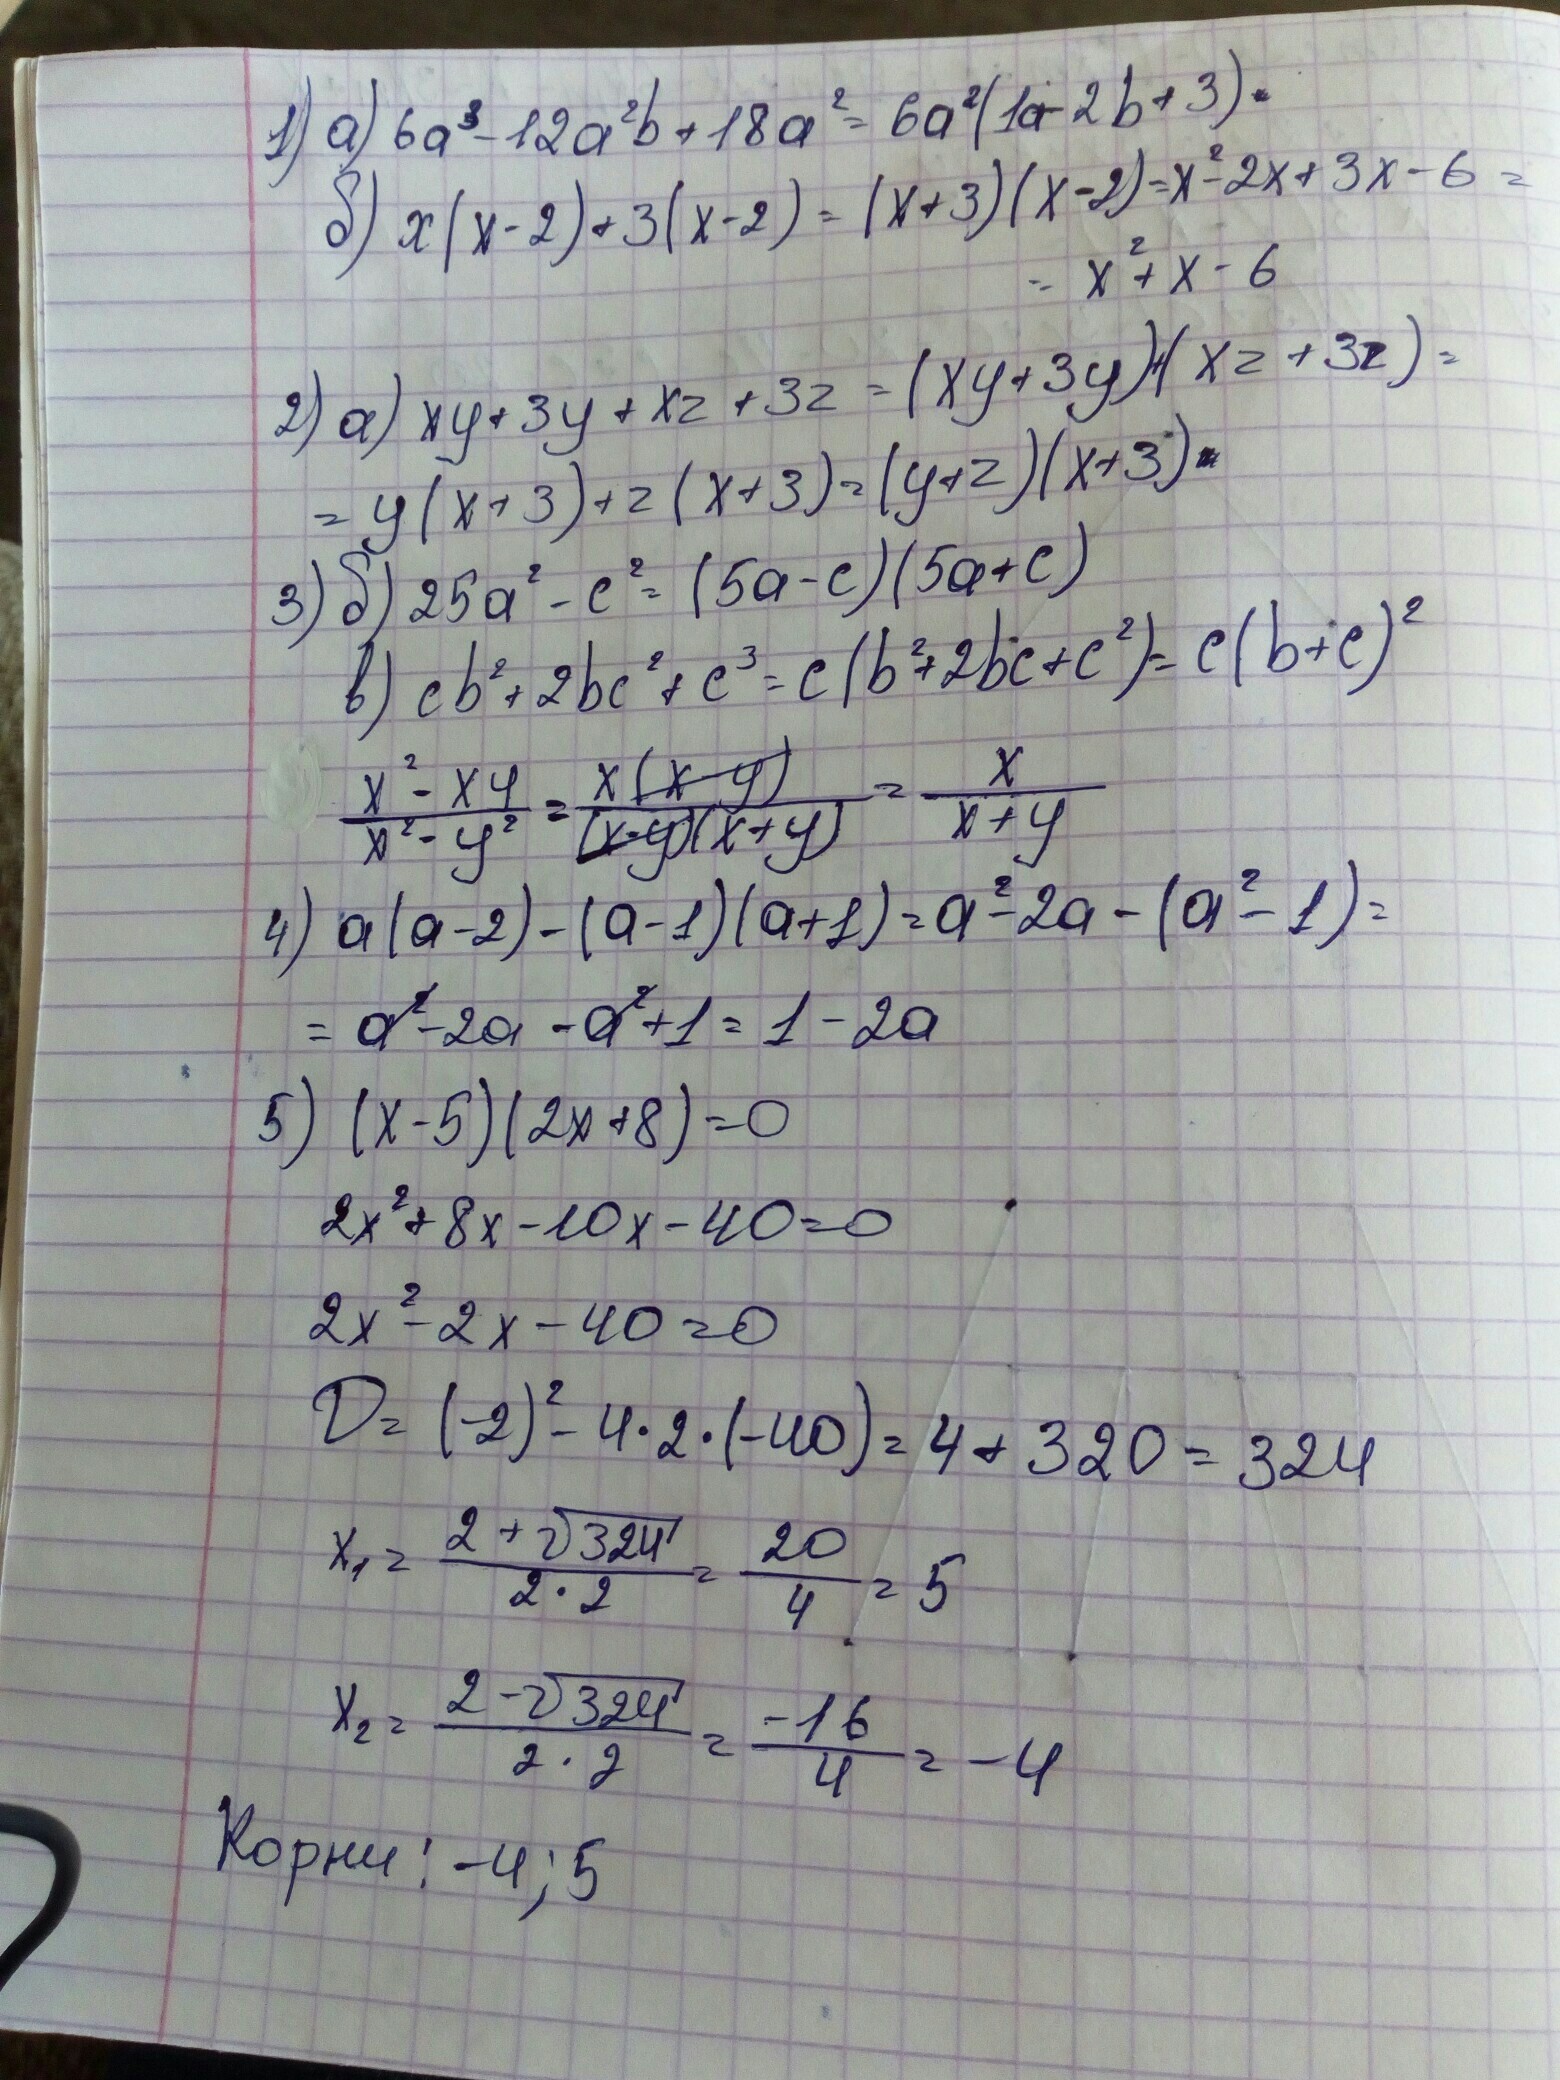 1) а) 6a³ - 12a²b + 18a² = 6a²(1a - 2b + 3).
б) x(x-2) + 3(x-2) = (x+3)(x-2) = x² - 2x + 3x - 6 =
= x² + x - 6
2) а) xy + 3y + xz + 3z = (xy + 3y) + (xz + 3z) =
= y(x+3) + z(x+3) = (y+z)(x+3).
3) б) 25a² - c² = (5a - c)(5a + c)
в) cb² + 2bc² + c³ = c(b² + 2bc + c²) = c(b+c)²
(x² - xy)/(x² - y²) = x(x-y)/((x-y)(x+y)) = x/(x+y)
4) a(a-2) - (a-1)(a+1) = a² - 2a - (a² - 1) =
= a² - 2a - a² + 1 = 1 - 2a
5) (x-5)(2x+8) = 0
2x² + 8x - 10x - 40 = 0
2x² - 2x - 40 = 0
D = (-2)² - 4·2·(-40) = 4 + 320 = 324
x₁ = (2 + √324)/(2·2) = 20/4 = 5
x₂ = (2 - √324)/(2·2) = -16/4 = -4
Корни: -4; 5